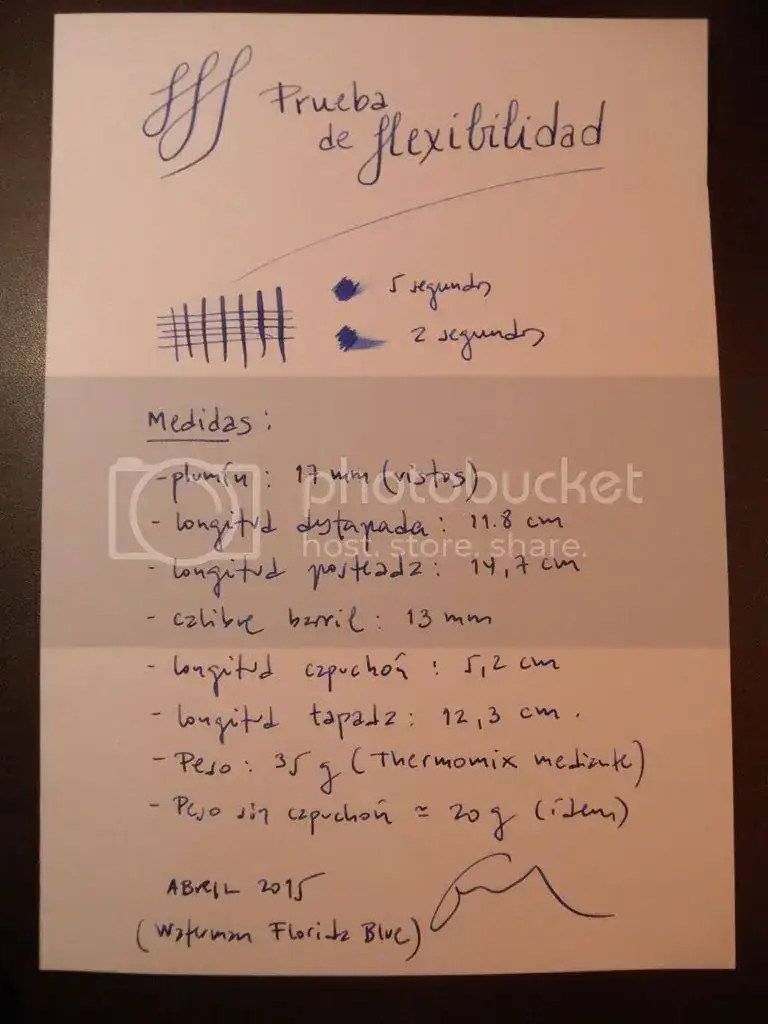 Prueba
de flexibilidad
5 segundos
2 segundos
Medidas:
- plumín: 17 mm (vistos)
- longitud destapada: 11.8 cm
- longitud posteada: 14,7 cm
- calibre barril: 13 mm
- longitud capuchón: 5,2 cm
- longitud tapada: 12,3 cm.
- Peso: 35 g (Thermomix mediante)
- Peso sin capuchón ≃ 20 g (ídem)
ABRIL 2015
(Waterman Florida Blue)
photobucket
host. store. share.